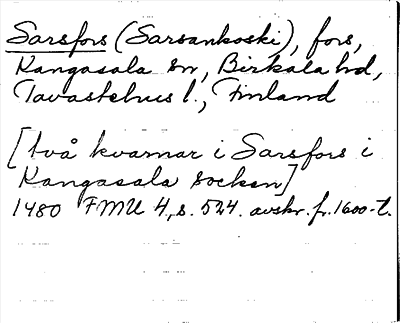 Sarsfors (Sarsankoski), fors,
Kangasala sn, Birkala hd,
Tavastehus l., Finland
[två kvarnar i Sarsfors i
Kangasala socken]
1480 FMU 4, s. 524. avskr. fr. 1600-t.